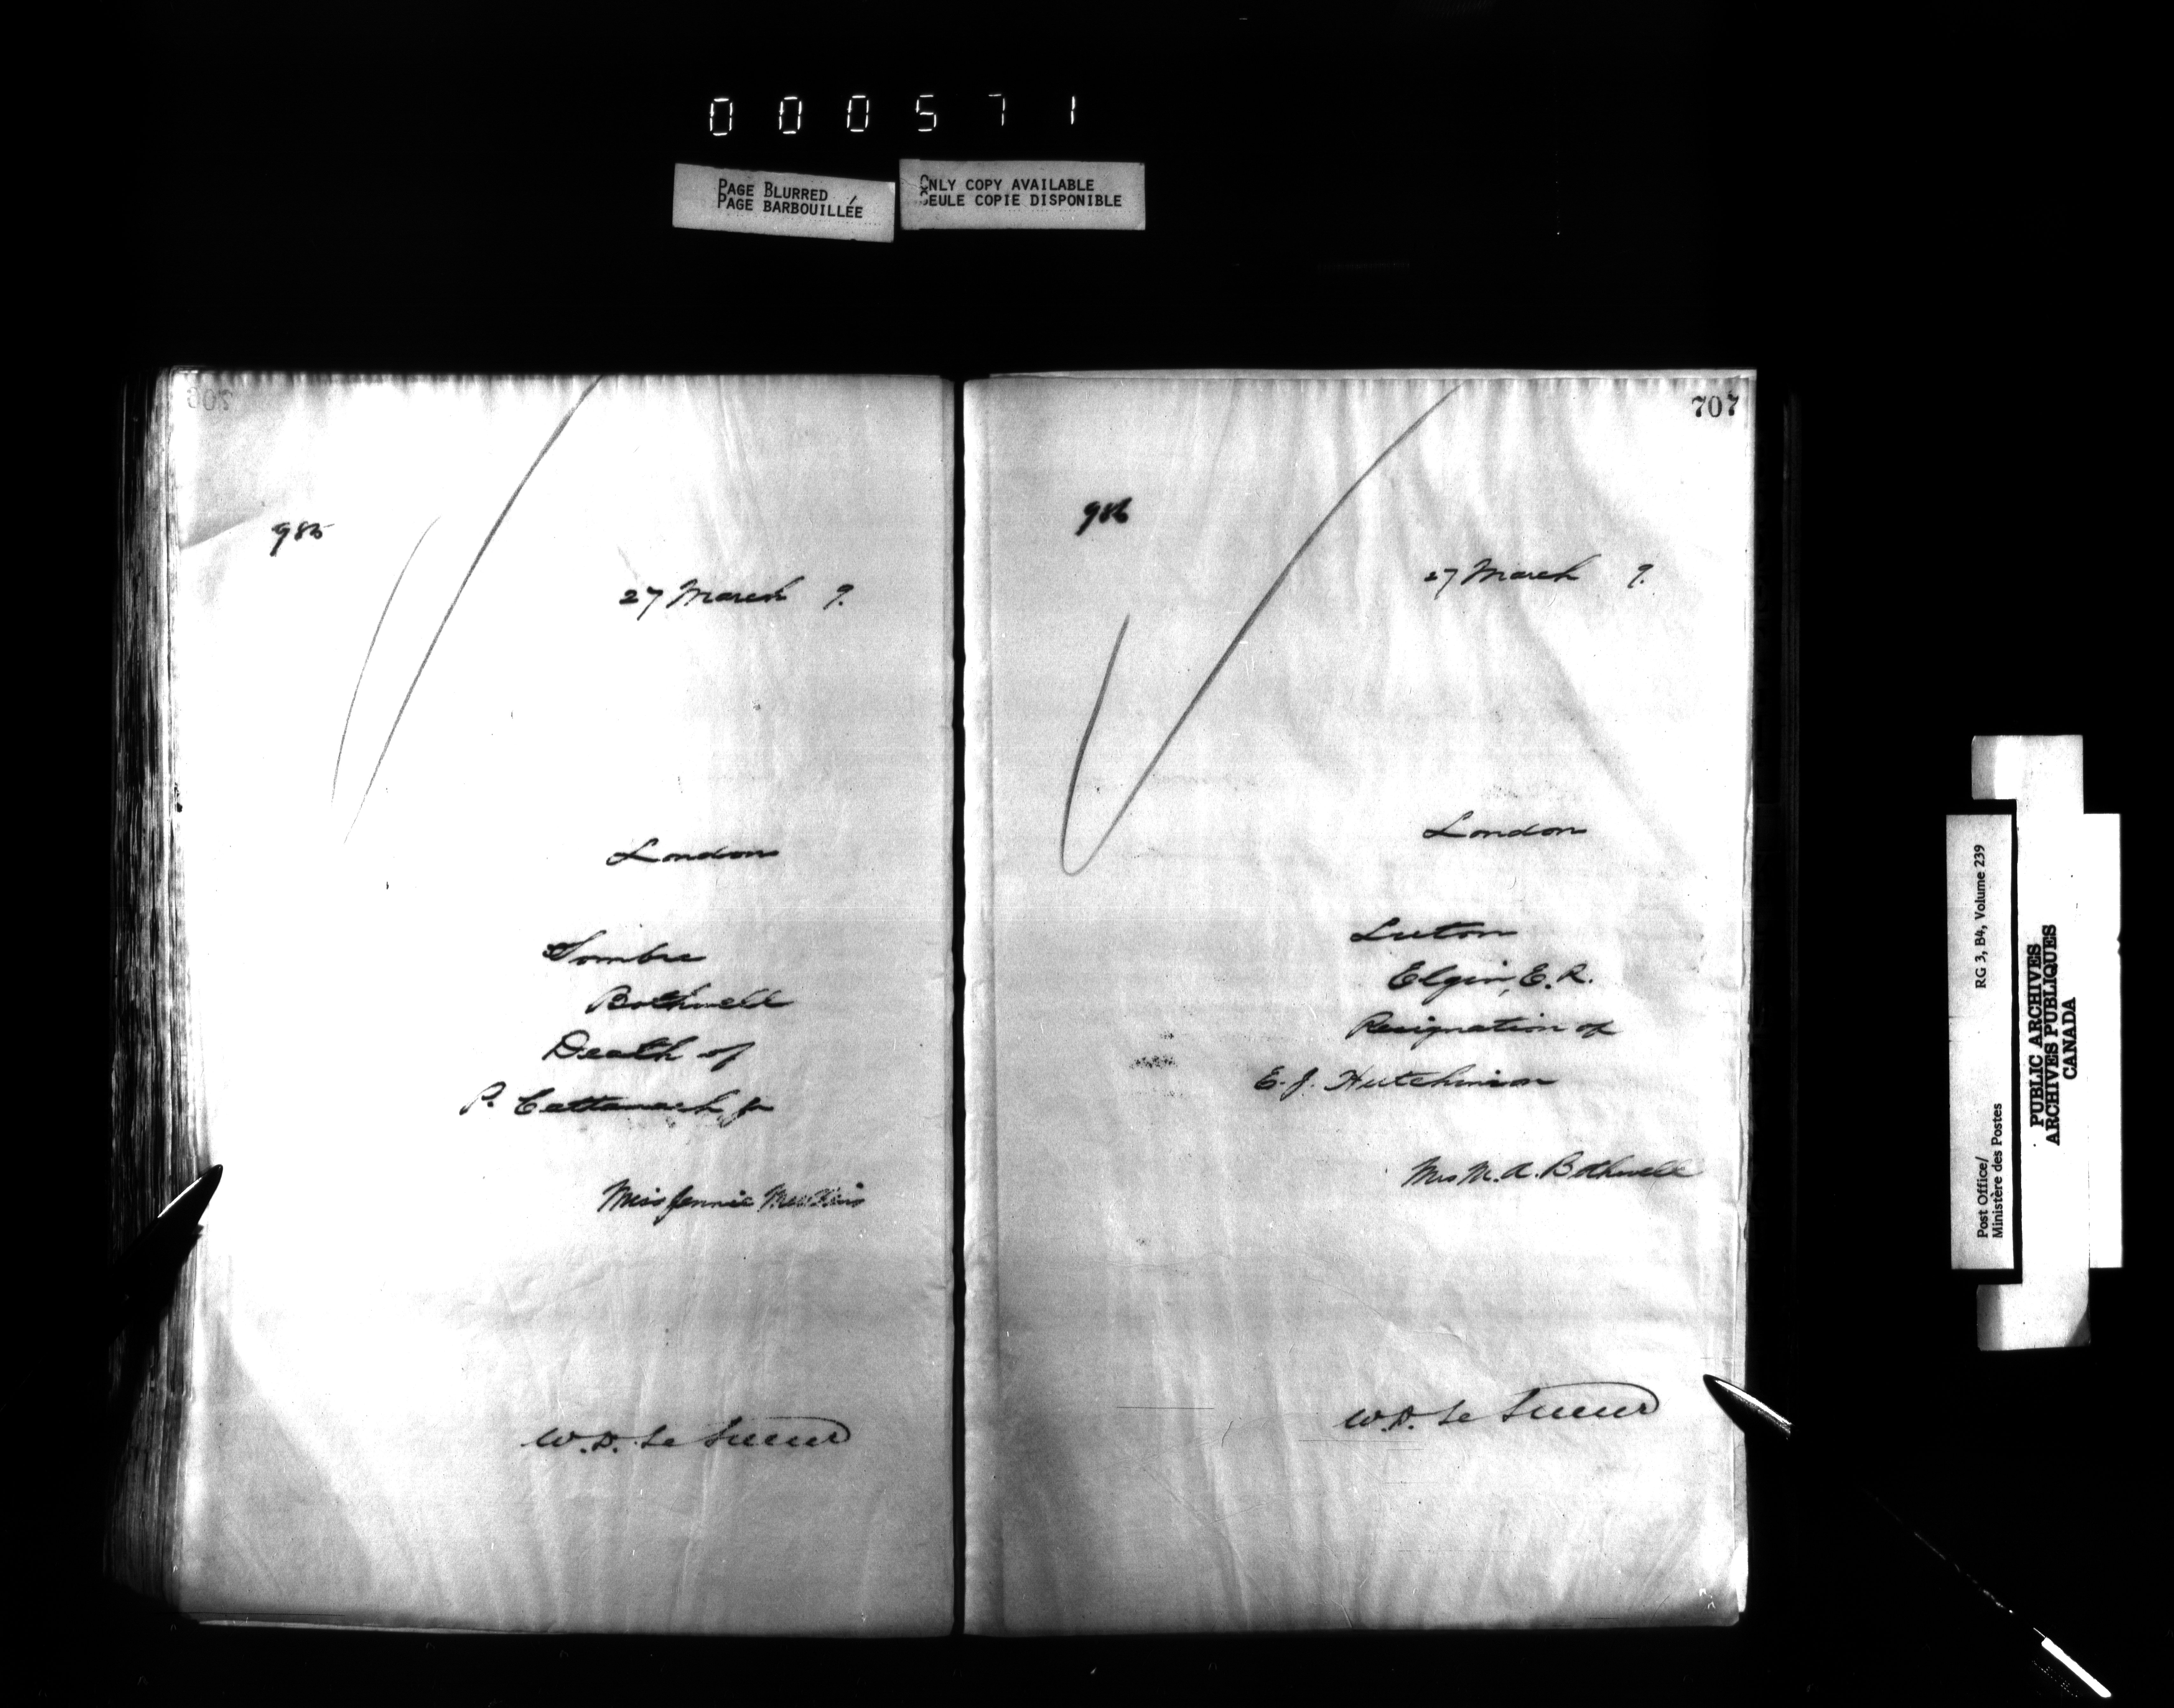 000571
PAGE BLURRED
PAGE BARBOUILLÉE
ONLY COPY AVAILABLE
SEULE COPIE DISPONIBLE
706
985
27 March 9.
London
Sombra
Bothwell
Death of
P. Cattanach Jr
Miss Jennie
W.D. Le Sueur
707
986
27 March 9.
London
Luton
Elgin, E.R.
Resignation of
E. J. Hutchinson
Mrs M. A. Bothwell
W.D. Le Sueur
Post Office/ RG 3, B4, Volume 239
Ministère des Postes
PUBLIC ARCHIVES
ARCHIVES PUBLIQUES
CANADA